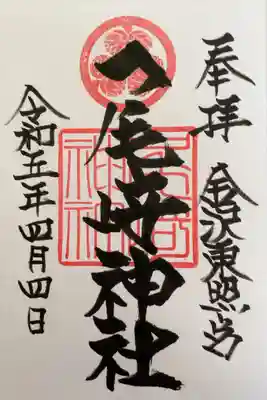 奉拝
金沢東照宮
尾崎神社
令和五年四月四日
尾崎
神社